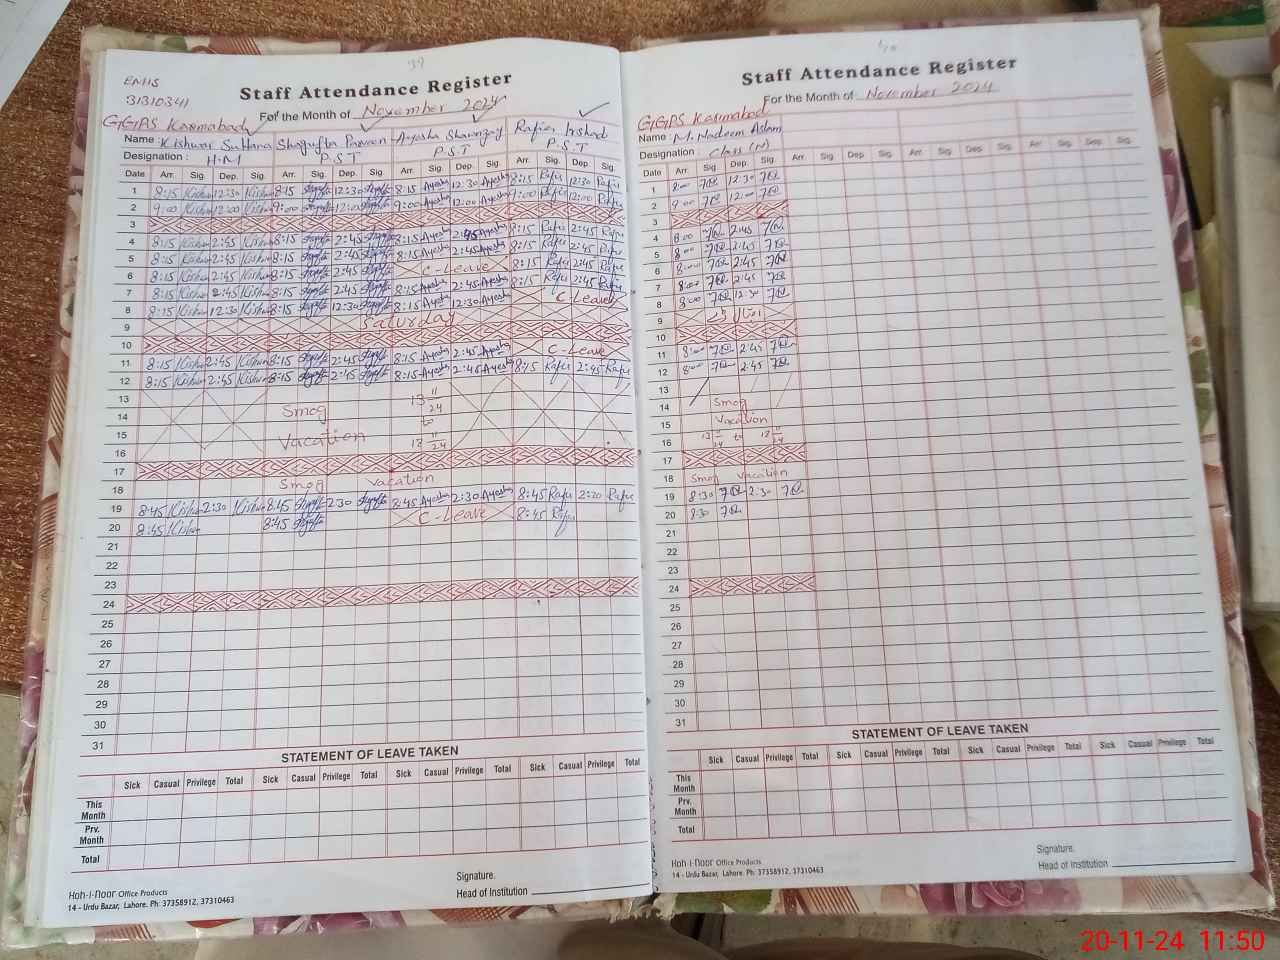 39
EMIS
31310341
Staff Attendance Register
For the Month of November 2024
GGPS Karmabad
Name : Kishwar Sultana Shagufta Parveen Ayesha Rafia Irshad
Designation : H.M P.S.T P.S.T P.S.T
Date Arr. Sig. Dep. Sig. Arr. Sig. Dep. Sig. Arr. Sig. Dep. Sig. Arr. Sig. Dep. Sig.
1 8:15 Kishwar 12:30 Kishwar 8:15 12:30 8:15 Ayesha 12:30 Ayesha 8:15 Rafia 12:30 Rafia
2 9:00 Kishwar 12:00 Kishwar 9:00 12:00 9:00 Ayesha 12:00 Ayesha 9:00 Rafia 12:00 Rafia
3
4 8:15 Kishwar 2:45 Kishwar 8:15 2:45 8:15 Ayesha 2:45 Ayesha 8:15 Rafia 2:45 Rafia
5 8:15 Kishwar 2:45 Kishwar 8:15 2:45 8:15 Ayesha 2:45 Ayesha 8:15 Rafia 2:45 Rafia
6 8:15 Kishwar 2:45 Kishwar 8:15 2:45 C-Leave 8:15 Rafia 2:45 Rafia
7 8:15 Kishwar 2:45 Kishwar 8:15 2:45 8:15 Ayesha 2:45 Ayesha 8:15 Rafia 2:45 Rafia
8 8:15 Kishwar 12:30 Kishwar 8:15 12:30 8:15 Ayesha 12:30 Ayesha C-Leave
9 Saturday
10
11 8:15 Kishwar 2:45 Kishwar 8:15 2:45 8:15 Ayesha 2:45 Ayesha C-Leave
12 8:15 Kishwar 2:45 Kishwar 8:15 2:45 8:15 Ayesha 2:45 Ayesha 8:15 Rafia 2:45 Rafia
13 13 11/24
14 Smog to
15 Vacation 17 11/24
16
17
18 Smog Vacation
19 8:45 Kishwar 2:30 Kishwar 8:45 2:30 8:45 Ayesha 2:30 Ayesha 8:45 Rafia 2:20 Rafia
20 8:45 Kishwar 8:45 C-Leave 8:45 Rafia
21
22
23
24
25
26
27
28
29
30
31
STATEMENT OF LEAVE TAKEN
Sick Casual Privilege Total Sick Casual Privilege Total Sick Casual Privilege Total Sick Casual Privilege Total
This Month
Prv. Month
Total
Signature.
Head of Institution
Koh-i-Noor Office Products
14 - Urdu Bazar, Lahore. Ph: 37358912, 37310463
Staff Attendance Register
For the Month of November 2024
GGPS Karmabad
Name : M. Nadeem Aslam
Designation Class (IV)
Date Arr. Sig. Dep. Sig. Arr. Sig. Dep. Sig. Arr. Sig. Dep. Sig. Arr. Sig. Dep. Sig.
1 8:00 12:30
2 9:00 12:00
3
4 8:00 2:45
5 8:00 2:45
6 8:00 2:45
7 8:00 2:45
8 8:00 12:30
9
10
11 8:00 2:45
12 8:00 2:45
13
14 Smog
15 Vacation
16 13 11/24 to 17 11/24
17
18 Smog Vacation
19 8:30 2:30
20 8:30
21
22
23
24
25
26
27
28
29
30
31
STATEMENT OF LEAVE TAKEN
Sick Casual Privilege Total Sick Casual Privilege Total Sick Casual Privilege Total Sick Casual Privilege Total
This Month
Prv. Month
Total
Signature.
Head of Institution
Koh-i-Noor Office Products
14 - Urdu Bazar, Lahore. Ph: 37358912, 37310463
20-11-24 11:50